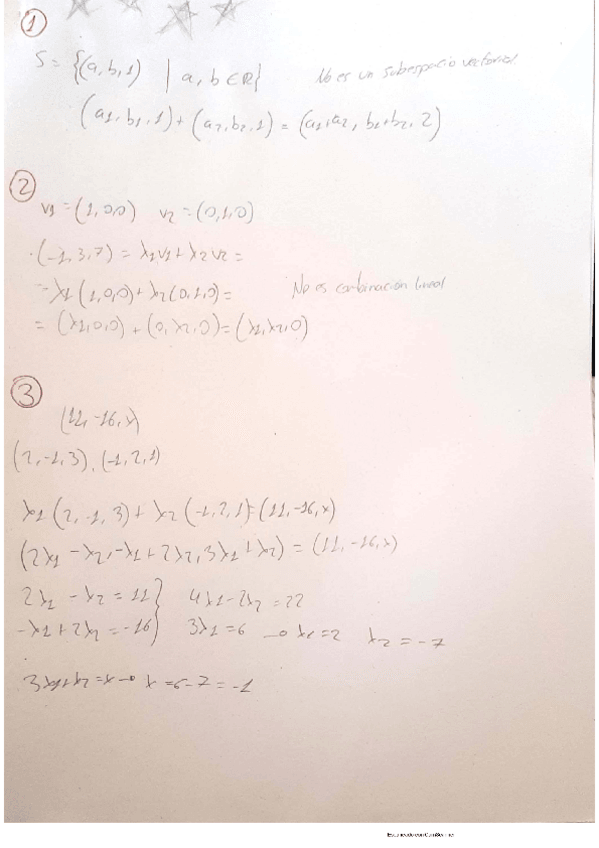 1
S = {(a, b, 1) | a, b ∈ R} No es un subespacio vectorial
(a1, b1, 1) + (a2, b2, 1) = (a1+a2, b1+b2, 2)
2
v1 = (1, 0, 0) v2 = (0, 1, 0)
·(-1, 3, 7) = λ1v1 + λ2v2 =
= λ1(1, 0, 0) + λ2(0, 1, 0) = No es combinación lineal
= (λ1, 0, 0) + (0, λ2, 0) = (λ1, λ2, 0)
3
(11, -16, x)
(2, -1, 3), (-1, 2, 1)
λ1(2, -1, 3) + λ2(-1, 2, 1) = (11, -16, x)
(2λ1 - λ2, -λ1 + 2λ2, 3λ1 + λ2) = (11, -16, x)
2λ1 - λ2 = 11 } 4λ1 - 2λ2 = 22
-λ1 + 2λ2 = -16 } 3λ1 = 6 → λ1 = 2 λ2 = -7
3λ1 + λ2 = x → x = 6 - 7 = -1
Escaneado con CamScanner